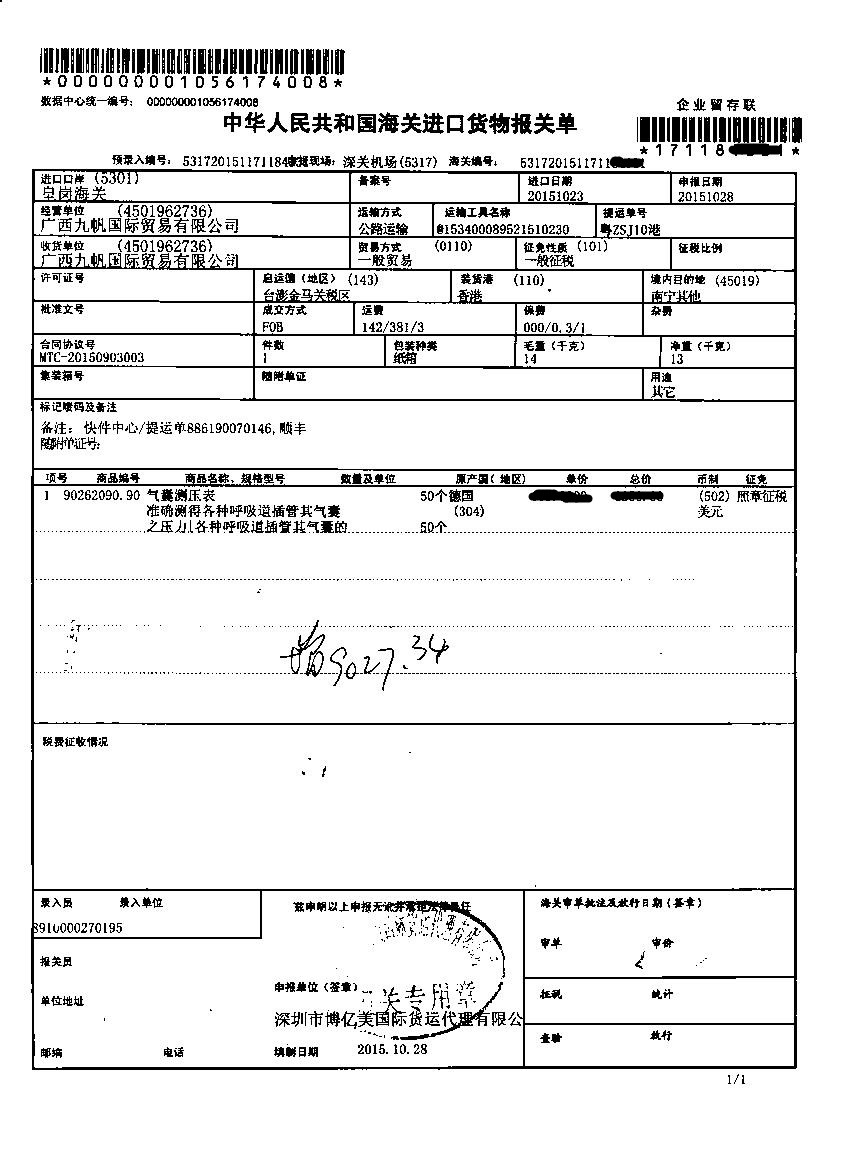 *000000001056174008*
数据中心统一编号: 000000001056174008
企业留存联
中华人民共和国海关进口货物报关单
*17118
预录入编号: 531720151171184 现场: 深关机场(5317) 海关编号: 5317201511711
进口口岸 (5301) 备案号 进口日期 申报日期
皇岗海关 20151023 20151028
经营单位 (4501962736) 运输方式 运输工具名称 提运单号
广西九帆国际贸易有限公司 公路运输 @153400089521510230 粤ZSJ10港
收货单位 (4501962736) 贸易方式 (0110) 征免性质 (101) 征税比例
广西九帆国际贸易有限公司 一般贸易 一般征税
许可证号 启运国(地区) (143) 装货港 (110) 境内目的地 (45019)
台澎金马关税区 香港 南宁其他
批准文号 成交方式 运费 保费 杂费
FOB 142/381/3 000/0.3/1
合同协议号 件数 包装种类 毛重(千克) 净重(千克)
MTC-20150903003 1 纸箱 14 13
集装箱号 随附单证 用途
其它
标记唛码及备注
备注: 快件中心/提运单886190070146,顺丰
随附单证号:
项号 商品编号 商品名称、规格型号 数量及单位 原产国(地区) 单价 总价 币制 征免
1 90262090.90 气囊测压表 50个德国 (502) 照章征税
准确测得各种呼吸道插管其气囊 (304) 美元
之压力|各种呼吸道插管其气囊的 50个
9027.34
税费征收情况
录入员 录入单位 兹申明以上申报无讹并承担法律责任 海关审单批注及放行日期(签章)
8910000270195
审单 审价
报关员
申报单位(签章) 关专用章
征税 统计
单位地址
深圳市博亿美国际货运代理有限公
查验 放行
邮编 电话 填制日期 2015.10.28
1/1